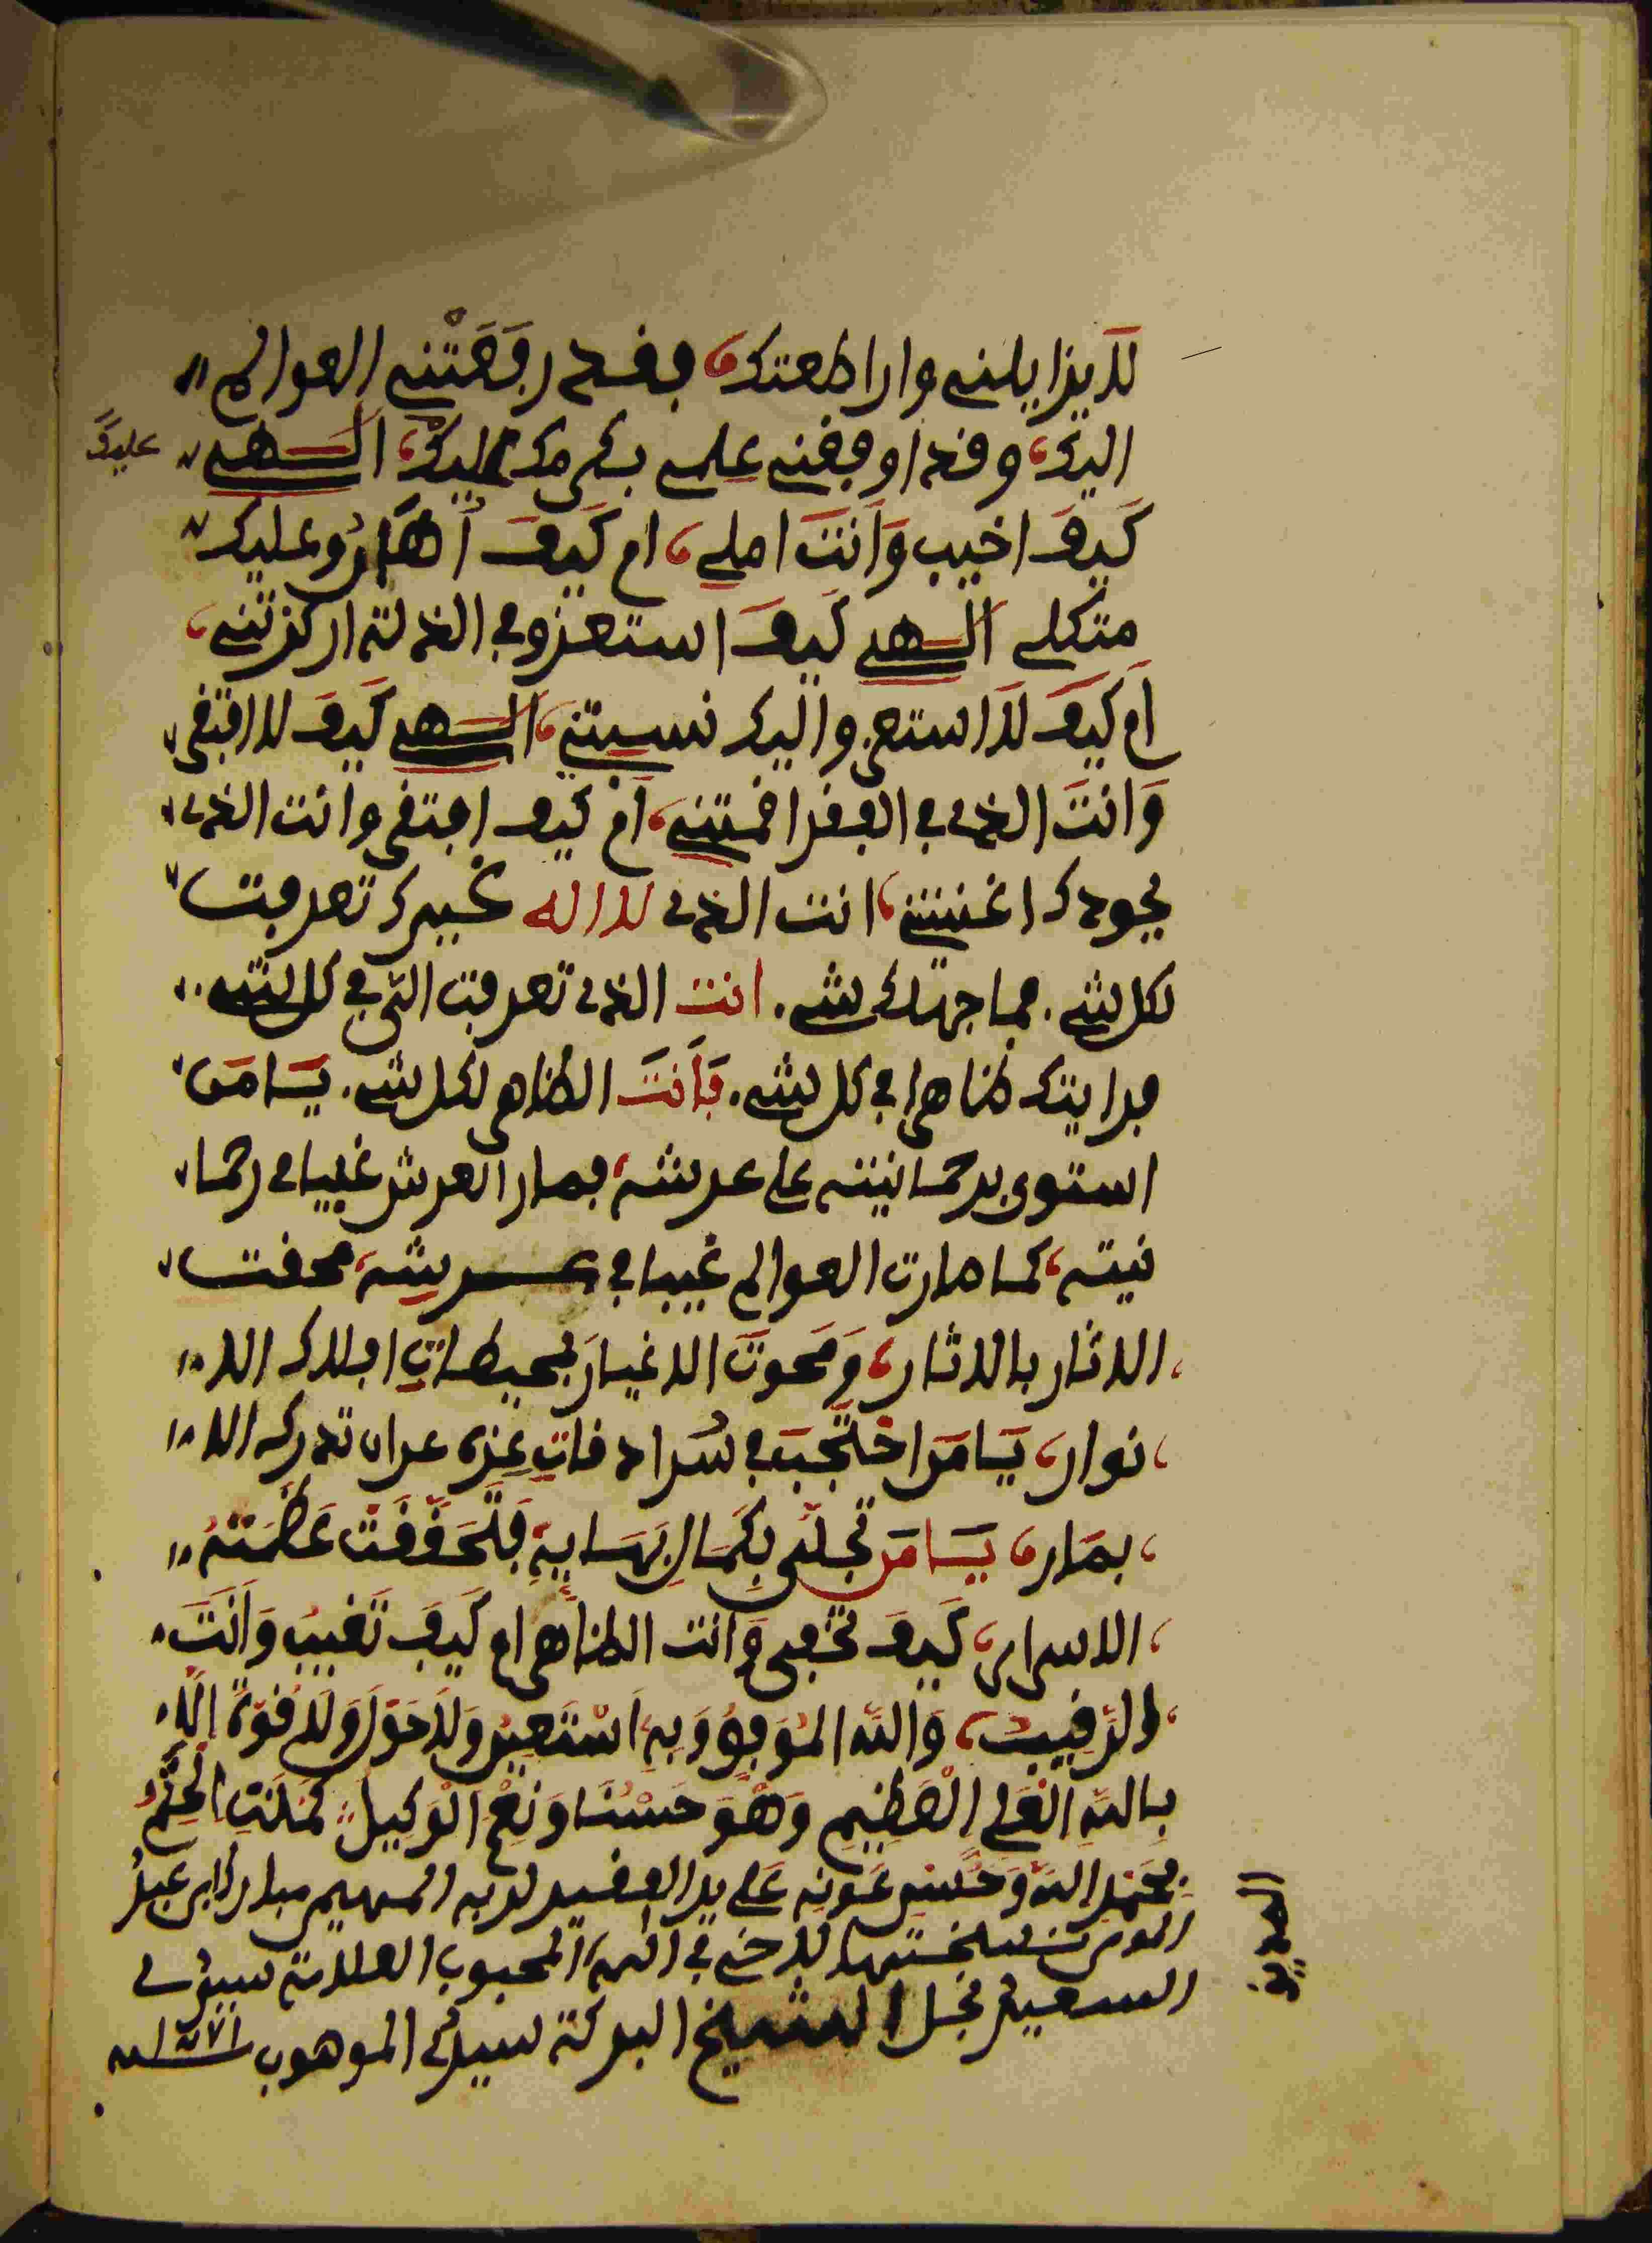 لا يزايلني وان اطعتك، فقد دفعتني العوالم
اليك، وقد اوقفني علمي بكرمك عليك، الهي عليك
كيف اخيب وانت املي، ام كيف اهان وعليك
متكلي الهي كيف استعز وفي الذلة اركزتني،
ام كيف لا استعز واليك نسبتني، الهي كيف لا افتقر
وانت الذي في الفقر اقمتني، ام كيف افتقر وانت الذي
بجودك اغنيتني، انت الذي لا اله غيرك تعرفت
لكل شيء. فما جهلك شيء. انت الذي تعرفت الي في كل شيء
فرايتك ظاهرا في كل شيء. فانت الظاهر لكل شيء. يا من
استوى برحمانيته على عرشه، فصار العرش غيبا في رحما
نيته، كما صارت العوالم غيبا في عرشه، محقت
الاثار بالاثار، ومحوت الاغيار بمحيطات افلاك الا
نوار، يا من احتجب في سرادقات عزه عن ان تدركه الا
بصار، يا من تجلى بكمال بهايه فتحققت عظمته
الاسرار، كيف تخفى وانت الظاهر ام كيف تغيب وانت
الرقيب، والله الموفق وبه استعين ولا حول ولا قوة الا
بالله العلي العظيم وهو حسبنا ونعم الوكيل كملت الحكم
بحمد الله وحسن عونه على يد الفقير لربه المهيمن مبارك ابن عبد
المومن نسختها لاخي في الله المحبوب العلامة سيدي
السعيد نجل الشيخ البركة سيدي الموهوب